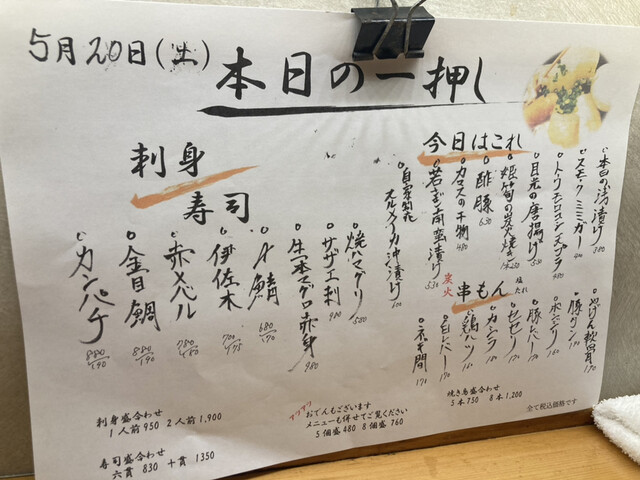 5月20日(土)
本日の一押し
今日はこれ
本日の浅漬け 380
スモークミミガー
トウモロコシ天プラ 480
目光の唐揚げ 530
姫筍の炭火焼き
酢豚 650
カマスの干物 480
若さぎ南蛮漬け 530
自家製
オルメイカ沖漬け
刺身
寿司
焼ハマグリ 500
サザエ刺 900
生本マグロ赤身 980
〆鯖 680/170
伊佐木 700/175
赤メバル 780/180
金目鯛 880/190
カンパチ 880/190
炭火
串もん
塩 たれ
豚タン 170
ボンジリ
豚レバー
セセリ
カシラ 170
鶏ハツ
白レバー 170
ネギ間 170
刺身盛合わせ
1人前 950 2人前 1,900
寿司盛合わせ
六貫 830 十貫 1350
アツアツ
おでんもございます
メニューも併せてご覧ください
5個盛 480 8個盛 760
焼き鳥盛合わせ
5本 750 8本 1,200
全て税込価格です